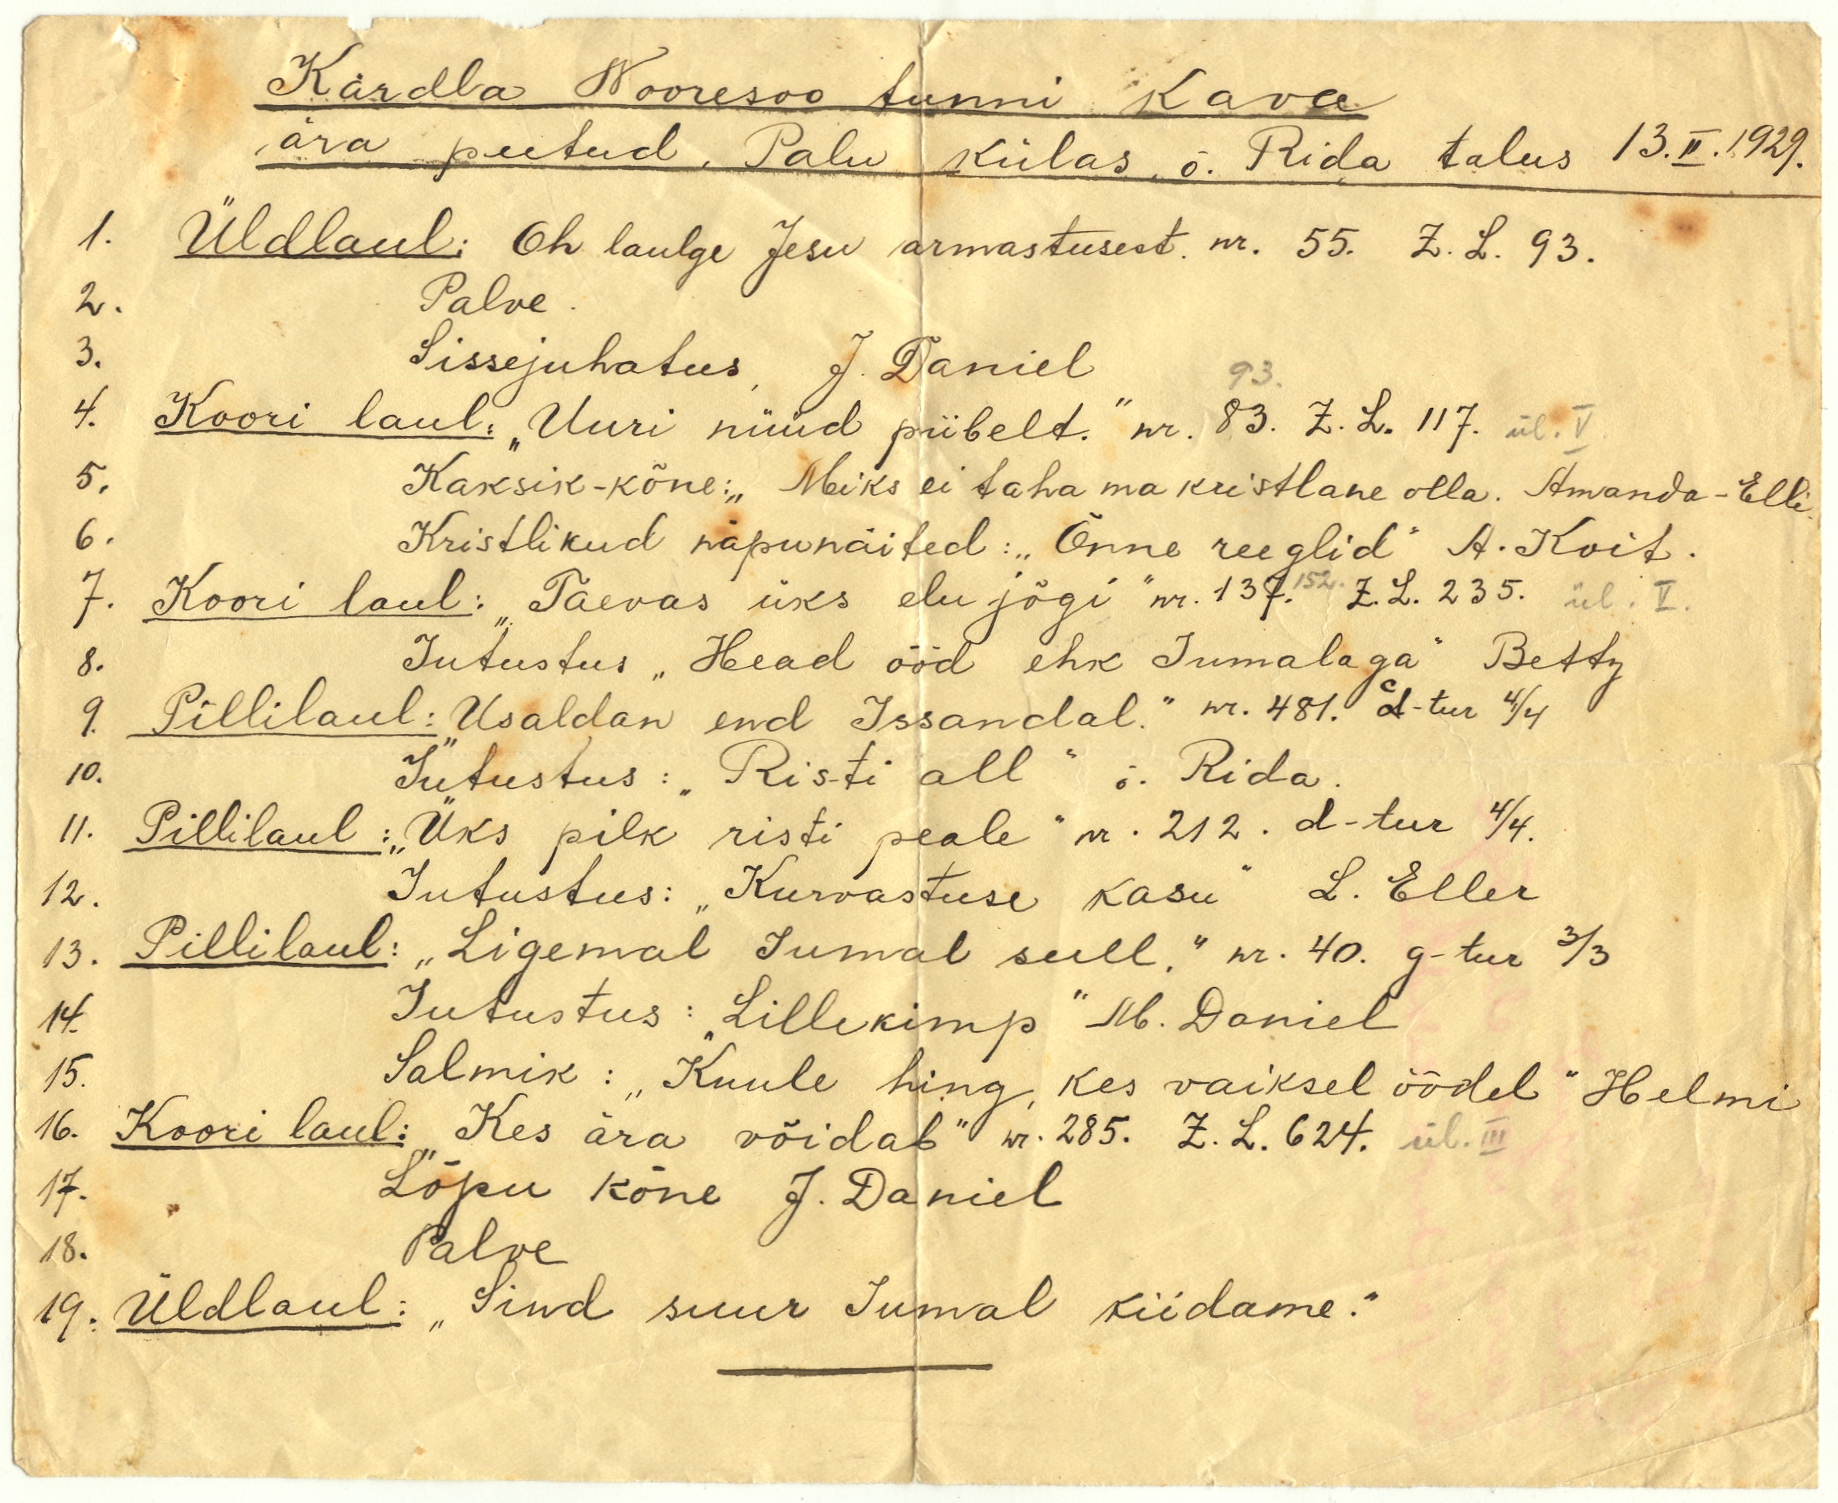 Kärdla Nooresoo tunni Kava
ära peetud, Palu külas, õ. Rida talus 13.II.1929.
1. Üldlaul: Oh laulge Jesu armastusest. nr. 55. Z. L. 93.
2. Palve.
3. Sissejuhatus, J. Daniel
93.
4. Koori laul: „Uuri nüüd piibelt." nr. 83. Z. L. 117. ül. V
5. Kaksik-kõne: „Miks ei taha ma kristlane olla. Amanda-Elli.
6. Kristlikud näpunäited: „Õnne reeglid" A. Koit.
7. Koori laul: „Taevas üks elu jõgi" nr. 137. 152. Z. L. 235. ül. V.
8. Jutustus „Head ööd ehk Jumalaga" Betty
9. Pillilaul: „Usaldan end Issandal." nr. 481. c d-tur 4/4
10. Jutustus: „Risti all" õ. Rida.
11. Pillilaul: „Üks pilk risti peale" nr. 212. d-tur 4/4.
12. Jutustus: „Kurvastuse kasu" L. Eller
13. Pillilaul: „Ligemal Jumal sull." nr. 40. g-tur 3/3
14. Jutustus: „Lillekimp" M. Daniel
15. Salmik: „Kuule hing, kes vaiksel öödel" Helmi
16. Koori laul: „Kes ära võidab" nr. 285. Z. L. 624. ül. III
17. Lõpu kõne J. Daniel
18. Palve
19. Üldlaul: „Sind suur Jumal kiidame."